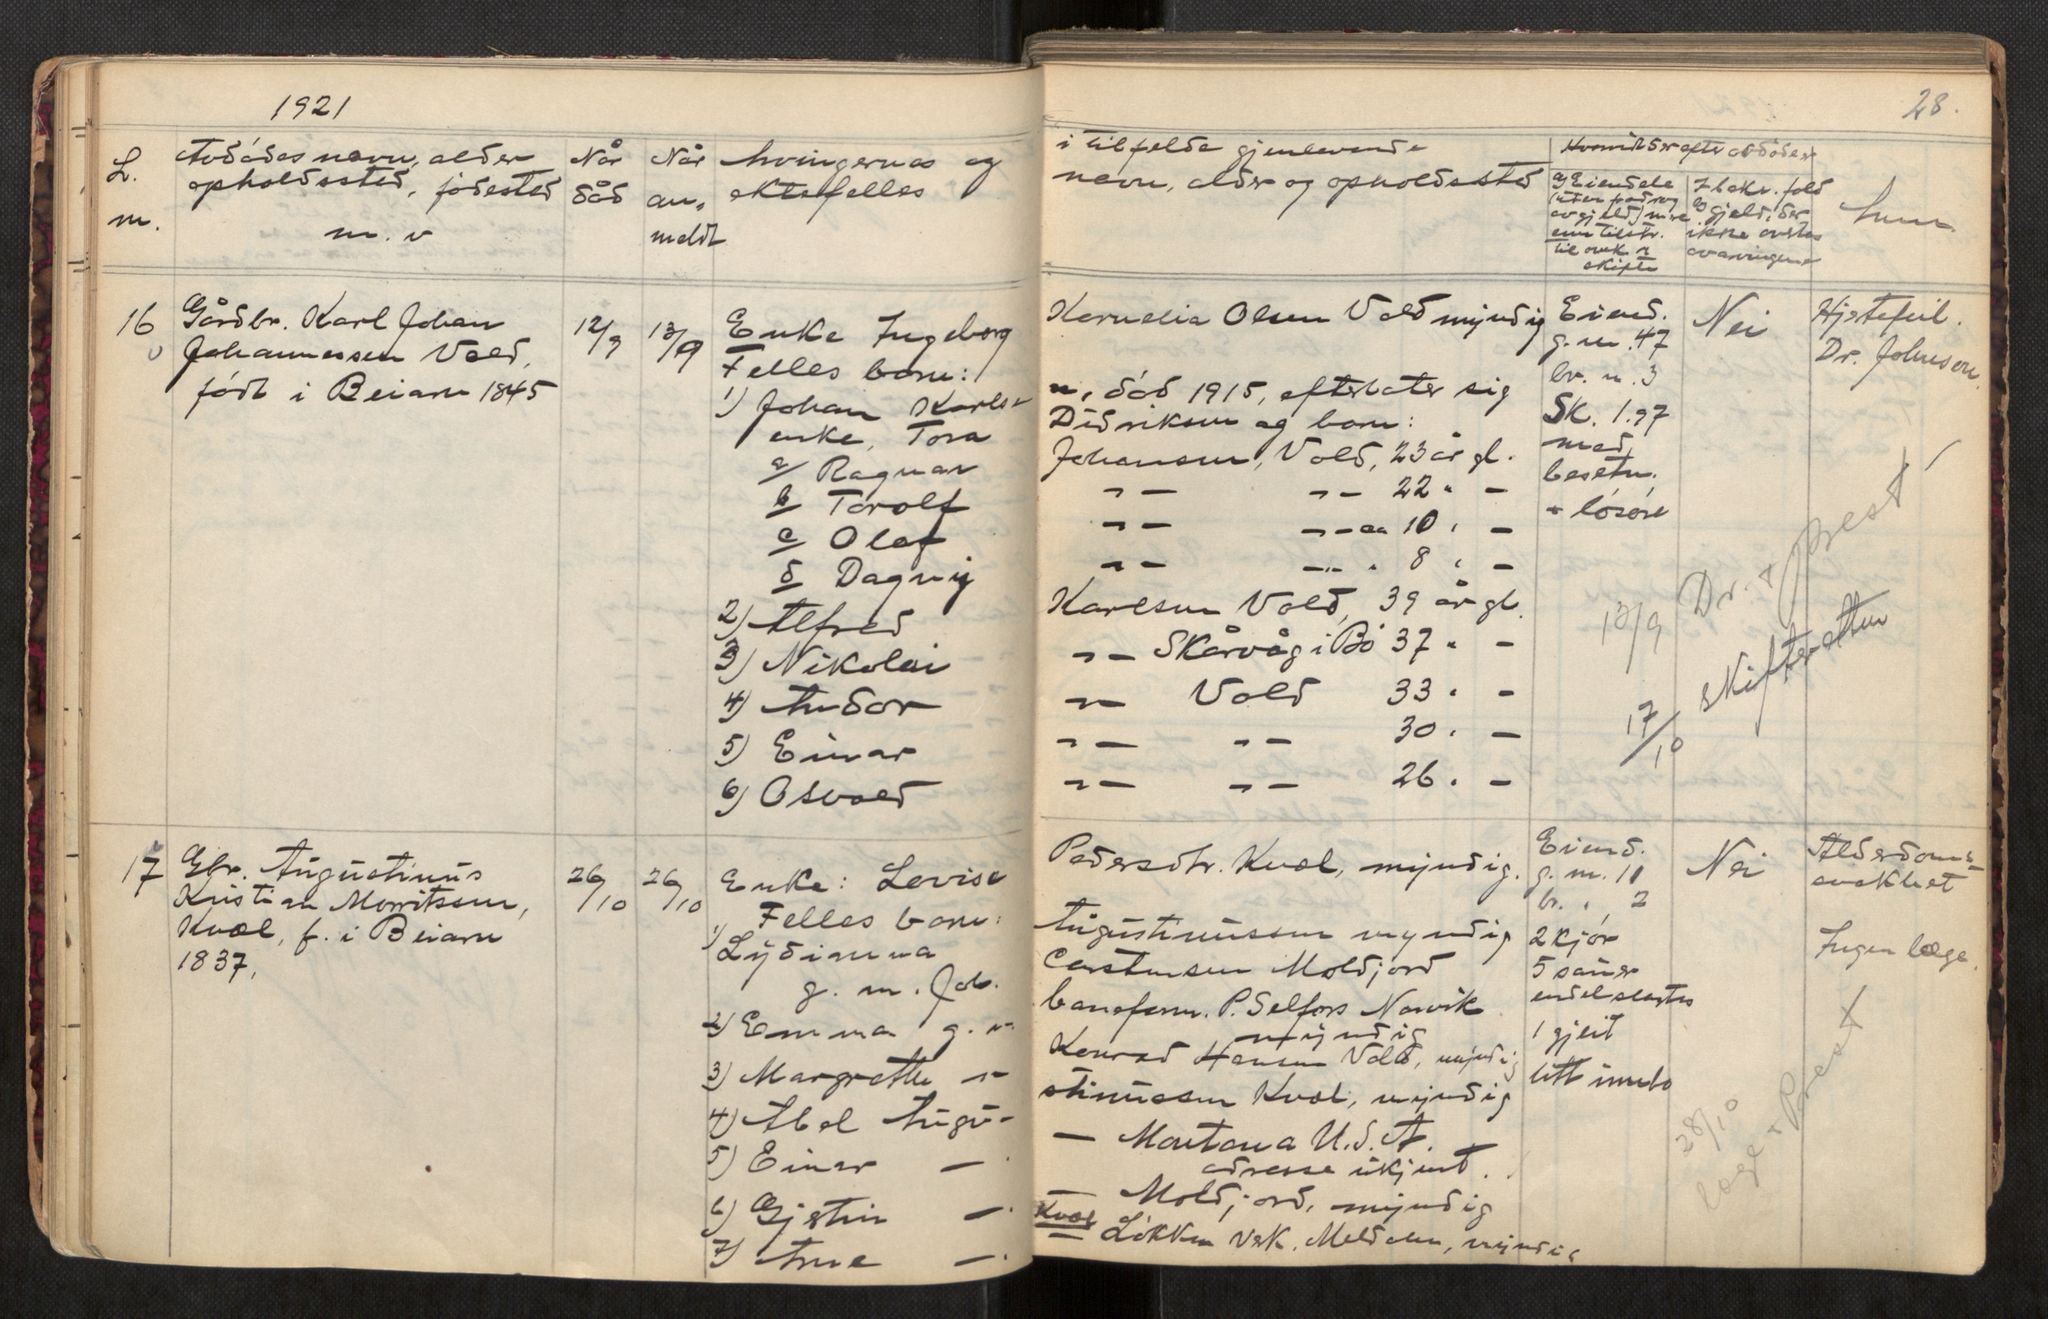 1921
28.
L.
m.
Avdødes navn, alder
opholdssted, fødested
m. v
Når
død
Når
an-
meldt
Arvingernes og
ektefelles
i tilfelde gjenlevende
navn, alder og opholdssted
Hvorvidt der efter avdøde er
a) Eiendele
til overk. el
skifte
b) gjeld, der
ikke overtas
av arvingene
Anm.
16
Gårdbr. Karl Johan
Johannessen Vold,
født i Beiarn 1845
12/9
13/9
Enke Ingeborg Kornelia Olsen Vold myndig
Felles barn:
1) Johan Karlsen, død 1915, efterlater sig
enke, Tora Didriksen og barn:
a/ Ragnar Johansen, Vold, 23 år gl.
b/ Torolf -"- -"- 22 " -
c/ Olaf -"- -"- 10 " -
d/ Dagny -"- -"- 8 " -
2) Alfred Karlsen Vold, 39 år gl.
3) Nikolai -"- Skårvåg i Bø 37 " -
4) Andor -"- Vold 33 " -
5) Einar -"- -"- 30 " -
6) Osvald -"- -"- 26 " -
Eiend.
g. nr. 47
br. n. 3
Sk. 1.97
med
besetn.
+ løsøre
Nei
Hjertefeil.
Dr. Johnson.
13/9 Dr. + Prest
17/10 Skifteretten
17
Gbr. Augustinus
Kristian Moritssen,
Kvæl, f. i Beiarn
1837,
26/10
26/10
Enke: Lovise Pedersdtr. Kvæl, myndig.
Felles barn:
1) Lydianna Augustinussen myndig
g. m. Joh. Carstensen Moldjord
2) Emma g. m baneform. P. Selfors Narvik
myndig
3) Margrethe -"- Konrad Hansen Vold, myndig
4) Abel Augustinussen Kvæl, myndig
5) Einar — — Montana U.S.A.
adresse ukjent.
6) Gjertin — — Moldjord, myndig
7) Arne — Kvæl Løkken Verk, Meldalen, myndig
Eiend.
g. nr. 11
br. " 2
2 kjør
5 sauer
endel
1 gjeit
litt innbo
Nei
Alderdoms-
svakhet
Ingen læge.
28/10
læge + Prest